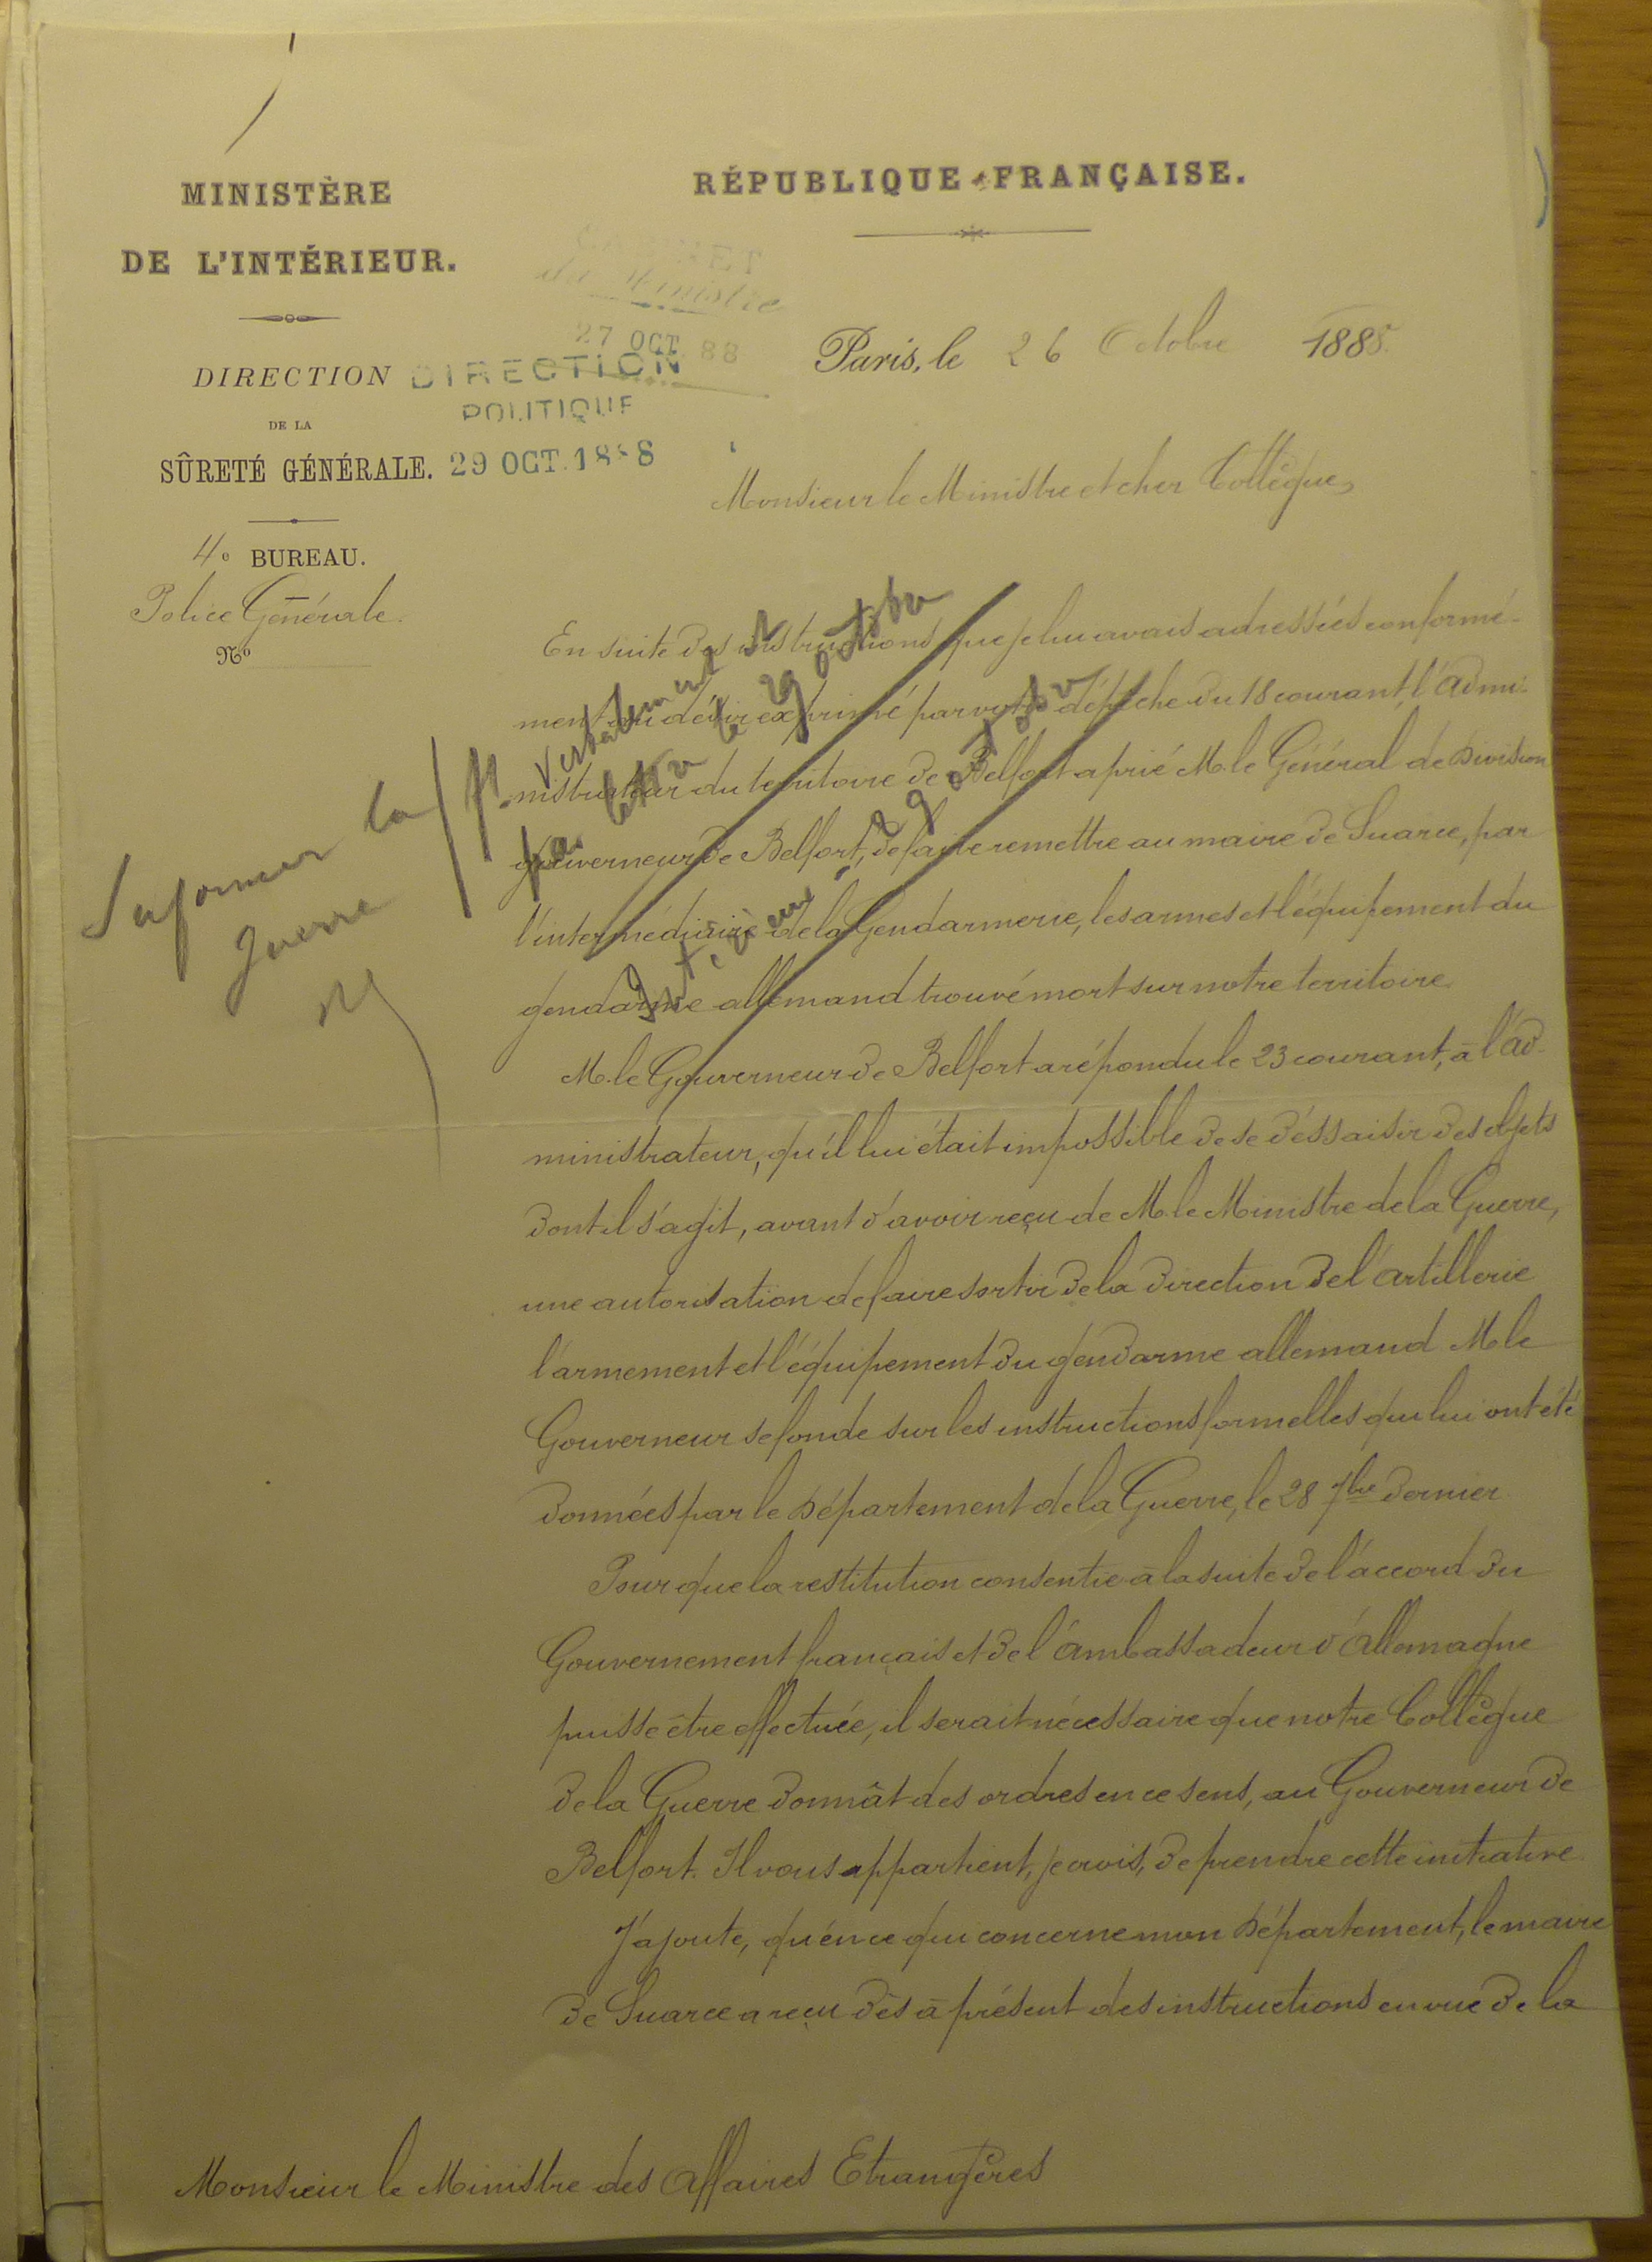 MINISTÈRE
DE L'INTÉRIEUR.
DIRECTION
DE LA
SÛRETÉ GÉNÉRALE.
4e BUREAU.
Police Générale.
No
RÉPUBLIQUE FRANÇAISE.
CABINET
du Ministre
27 OCT 88
DIRECTION
POLITIQUE
29 OCT. 1888
Paris, le 26 Octobre 1888.
Monsieur le Ministre et cher Collègue,
Informer la
Guerre
verbalement
par lettre le 29 octobre
Intérieur, 29 octobre
En suite des instructions que je lui avais adressées conformé-
ment au désir exprimé par votre dépêche du 18 courant, l'Admi-
nistrateur du territoire de Belfort a prié M. le Général de Division
gouverneur de Belfort, de faire remettre au maire de Suarce, par
l'intermédiaire de la Gendarmerie, les armes et l'équipement du
gendarme allemand trouvé mort sur notre territoire.
M. le Gouverneur de Belfort a répondu le 23 courant, à l'Ad-
ministrateur, qu'il lui était impossible de se déssaisir des objets
dont il s'agit, avant d'avoir reçu de M. le Ministre de la Guerre,
une autorisation de faire sortir de la Direction de l'Artillerie
l'armement et l'équipement du gendarme allemand M. le
Gouverneur se fonde sur les instructions formelles qui lui ont été
données par le Département de la Guerre, le 28 7bre dernier.
Pour que la restitution consentie à la suite de l'accord du
Gouvernement français et de l'Ambassadeur d'Allemagne
puisse être effectuée, il serait nécessaire que notre Collègue
de la Guerre donnât des ordres en ce sens, au Gouverneur de
Belfort. Il vous appartient, je crois, de prendre cette initiative.
J'ajoute, qu'en ce qui concerne mon Département, le maire
de Suarce a reçu dès à présent des instructions en vue de la
Monsieur le Ministre des Affaires Etrangères